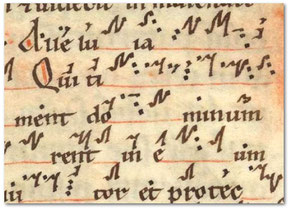 Alle lu ia
Qui ti
ment do minum
rent in e um
tor et protec